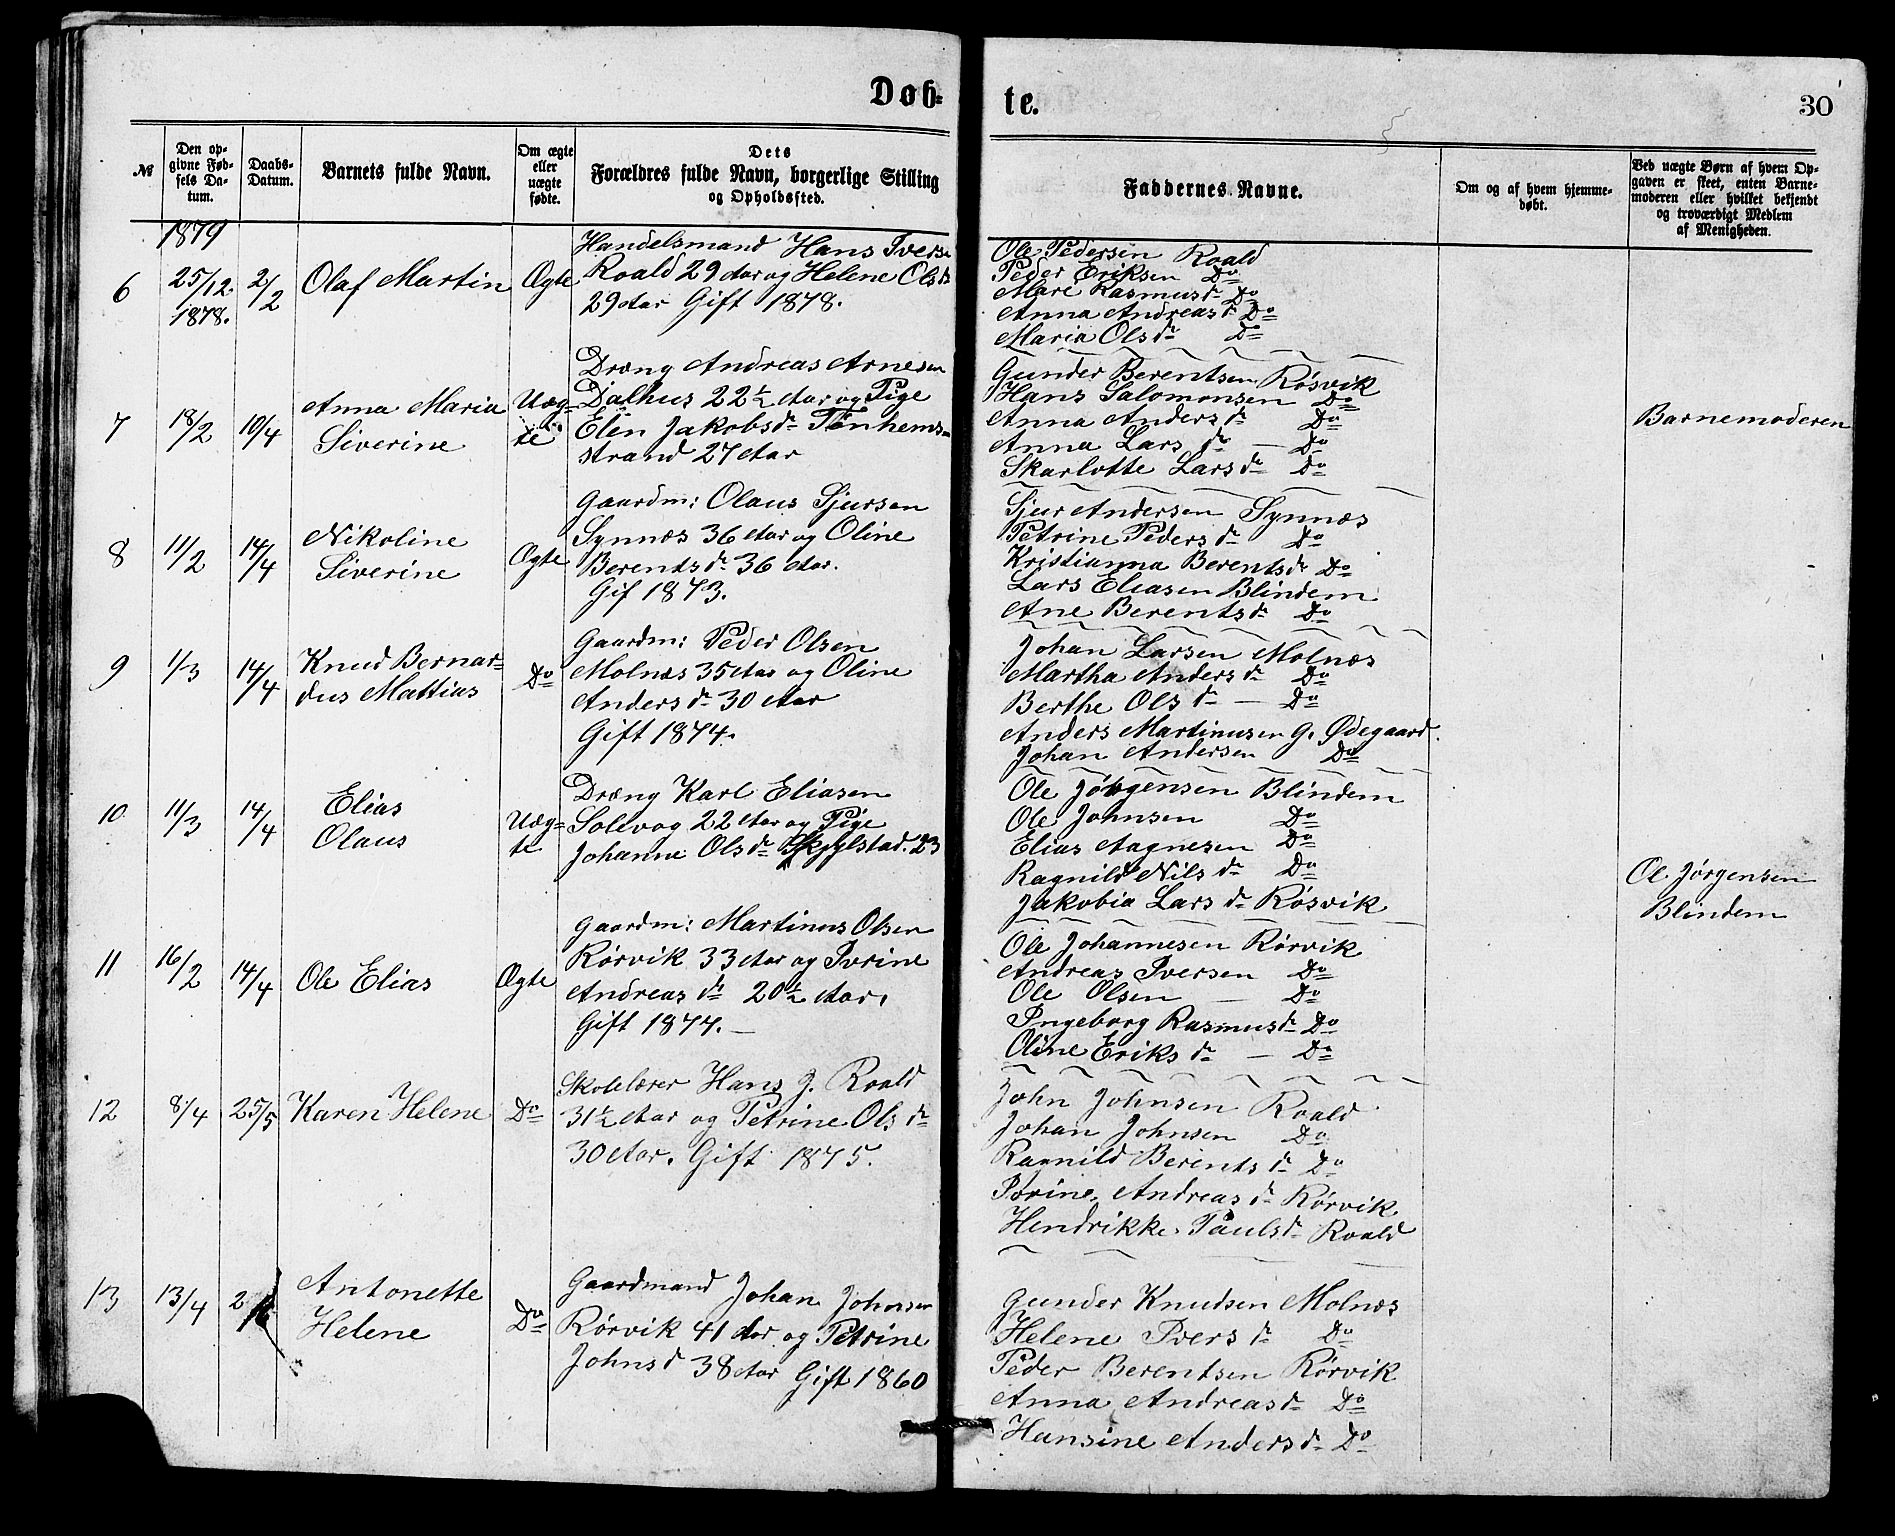 Døb-
te.
30
№
Den op-
givne Fød-
sels Da-
tum.
Daabs-
Datum.
Barnets fulde Navn.
Om ægte
eller
uægte
fødte.
Dets
Forældres fulde Navn, borgerlige Stilling
og Opholdssted.
Faddernes Navne.
Om og af hvem hjemme-
døbt.
Ved uægte Børn af hvem Op-
gaven er skeet, enten Barne-
moderen eller hvilket bekjendt
og troværdigt Medlem
af Menigheden.
1879
6
25/12
1878.
2/2
Olaf Martin
Ægte
Handelsmand Hans Ivers
Roald 29 Aar og Helene Olsdr
29 Aar Gift 1878.
Ole Pedersen Roald
Peder Eriksen Do
Mare Rasmusdr Do
Anna Andreasdr Do
Maria Olsdr Do
7
18/2
10/4
Anna Maria
Siverine
Uæg-
te
Dræng Andreas Arnesen
Dalhus 22½ Aar og Pige
Elen Jakobsdr Tenhems-
strand 27 Aar
Gunder Berentsen Rösvik
Hans Salomonsen Do
Anna Andersdr Do
Anna Larsdr — Do
Skarlotte Larsdr Do
Barnemoderen
8
11/2
14/4
Nikoline
Siverine
Ægte
Gaardm: Olaus Sjursen
Synnæs 36 Aar og Oline
Berentsdr 36 Aar.
Gif 1873.
Sjur Andersen Synnæs
Petrine Pedersdr Do
Kristianna Berentsdr Do
Lars Eliasen Blindem
Ane Berentsdr Do
9
1/3
14/4
Knud Bernar-
dus Mattias
Do
Gaardm: Peder Olsen
Molnæs 35 Aar og Oline
Andersdr 30 Aar
Gift 1874.
Johan Larsen Molnæs
Martha Andersdr Do
Berthe Olsdr — Do
Anders Martinusen G. Ødegaard.
Johan Andersen Do
10
11/3
14/4
Elias
Olaus
Uæg-
te
Dræng Karl Eliasen
Solevog 22 Aar og Pige
Johanne Olsdr Skjylstad. 23
Ole Jörgensen Blindem
Ole Johnsen Do
Elias Aagnesen Do
Ragnild Nilsdr Do
Jakobia Larsdr Rösvik
Ol. Jørgensen
Blindem
11
16/2
14/4
Ole Elias
Ægte
Gaardm: Martinus Olsen
Rörvik 33 Aar og Ivrine
Andreasdr 20½ Aar.
Gift 1877. —
Ole Johannesen Rörvik
Andreas Iversen Do
Ole Olsen — Do
Ingeborg Rasmusdr Do
Oline Eriksdr — Do
12
8/4
25/5
Karen Helene
Do
Skolelærer Hans J. Roald
31½ Aar og Petrine Olsdr
30 Aar. Gift 1875.
John Johnsen Roald
Johan Johnsen Do
Ragnild Berentsdr Do
Ivrine Andreasdr Rörvik
Hendrikke Paulsdr Roald
13
13/4
2
Antonette
Helene
Do
Gaardmand Johan Johnsen
Rörvik 41 Aar og Petrine
Johnsd 38 Aar Gift 1860
Gunder Knudsen Molnæs
Helene Iversdr Do
Peder Berentsen Rörvik
Anna Andreasdr Do
Hansine Andersdr Do